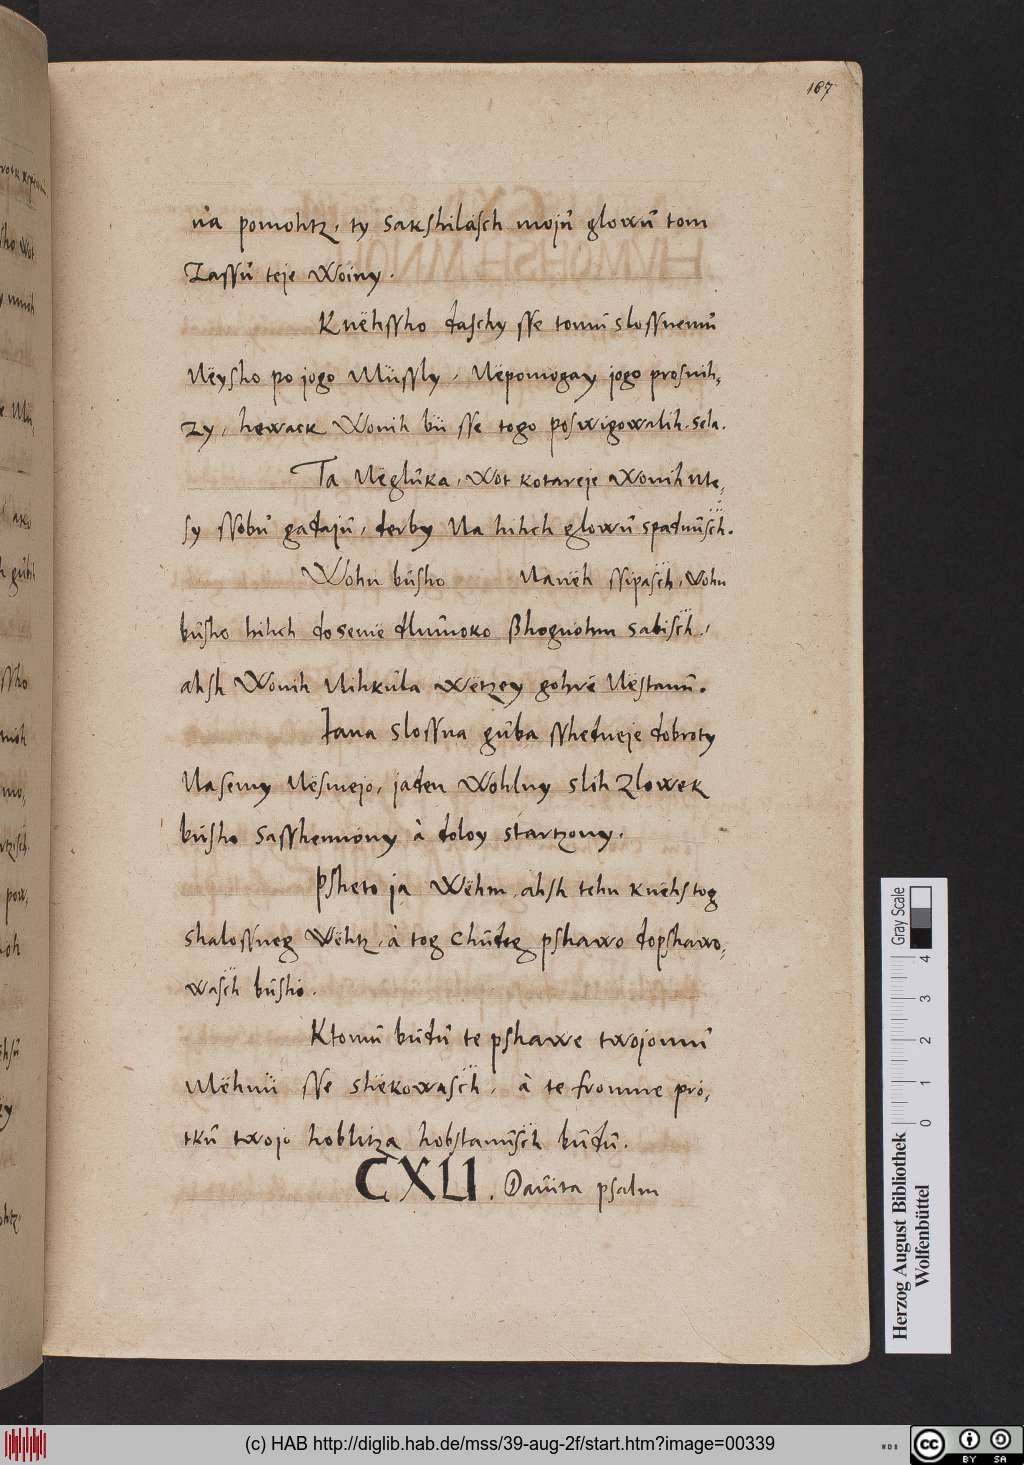 167
na pomohtz, ty sakshilasch mojů glowů tom
Zassů teje Woiny.
Knëhssho daschy sse tomů slossnemů
Nëysho po jogo Müssly, Nëpomogay jogo prosnih,
zy, hewack Wonih bü sse togo poswigowalih. sela.
Ta Nëglůka, Wot kotareje Wonih Me,
sy ssobů gadajů, derby Na hihch glowů spadnůsch.
Wohn bůsho Nanëh ssipasch, Wohn
bůsho hihch do semë dlumoko Bhognohm sabisch,
ahsk Wonih Nihkůla wëtzey gohrë Nëstanů.
Jana slossna gůba sshedneje dobroty
Nasemy Nësmejo, jaden Wohlny slih Zlowek
bůsho sasshennony à doloy startzony.
Psheto ja Wëhm, ahsk tehn knëhs tog
shalossneg Wëhtz, à tog Chůdeg pshawo dopshawo,
wasch bůsho.
Ktomů bůdů te pshawe twojomů
Mëhnü sse shëkowasch, à te fromme pro,
tků twojo hoblitza hobstanůsch bůdů.
CXLI. Dauita psalm
Herzog August Bibliothek
Wolfenbüttel
Gray Scale
0 1 2 3 4
(c) HAB http://diglib.hab.de/mss/39-aug-2f/start.htm?image=00339
WDB
cc BY SA